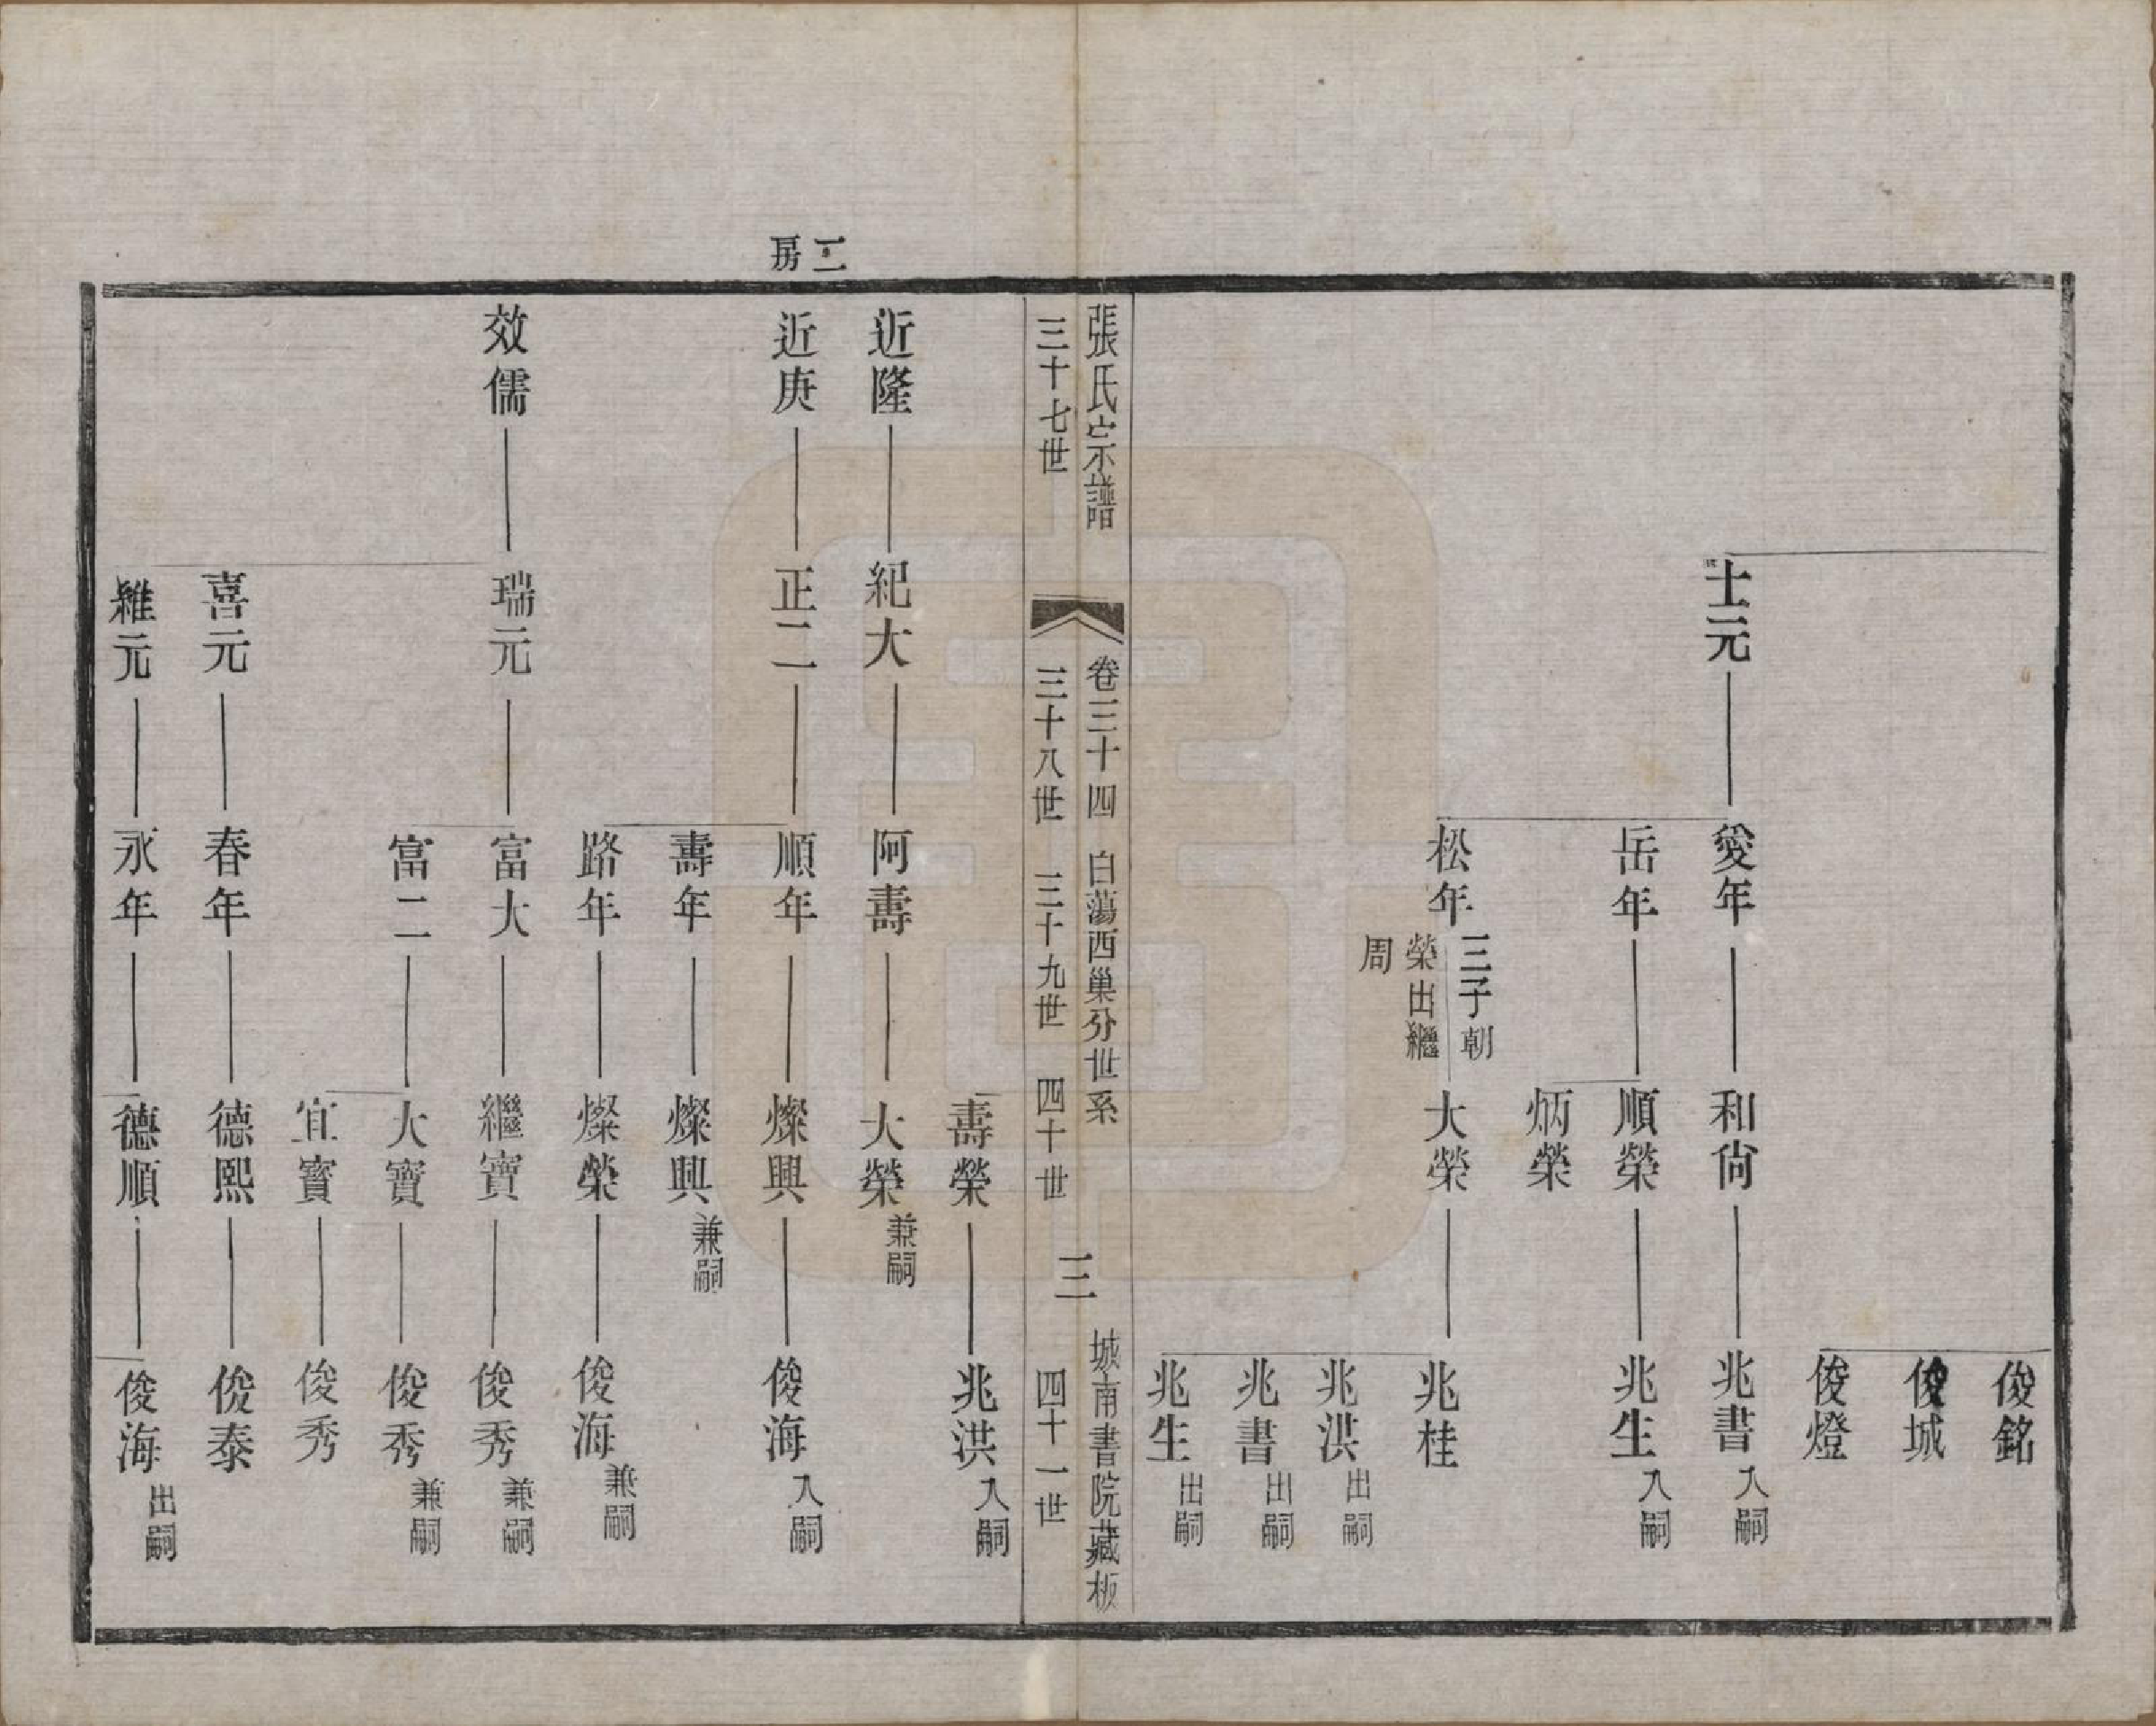 俊銘
俊城
俊燈
士元 愛年 和尙 兆書 入嗣
岳年 順榮 兆生 入嗣
炳榮
松年 三子朝
榮出繼
周
大榮 兆桂
兆洪 出嗣
兆書 出嗣
兆生 出嗣
張氏宗譜 卷三十四 白蕩西巢分世系 三 城南書院藏板
三十七世 三十八世 三十九世 四十世 四十一世
壽榮 兆洪 入嗣
近隆 紀大 阿壽 大榮 兼嗣
二
房
近庚 正二 順年 燦興 俊海 入嗣
壽年 燦興 兼嗣
路年 燦榮 俊海 兼嗣
效儒 瑞元 富大 繼寶 俊秀 兼嗣
富二 大寶 俊秀 兼嗣
宜寶 俊秀
喜元 春年 德熙 俊泰
維元 永年 德順 俊海 出嗣